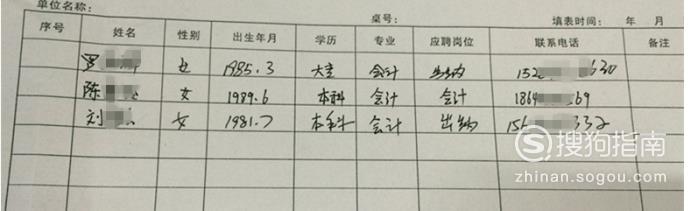 单位名称： 桌号： 填表时间： 年 月
序号 姓名 性别 出生年月 学历 专业 应聘岗位 联系电话 备注
罗 女 1985.3 大专 会计 出纳 152 630
陈 女 1989.6 本科 会计 会计 1864 69
刘 女 1981.7 本科 会计 出纳 156 332
搜狗指南
zhinan.sogou.com